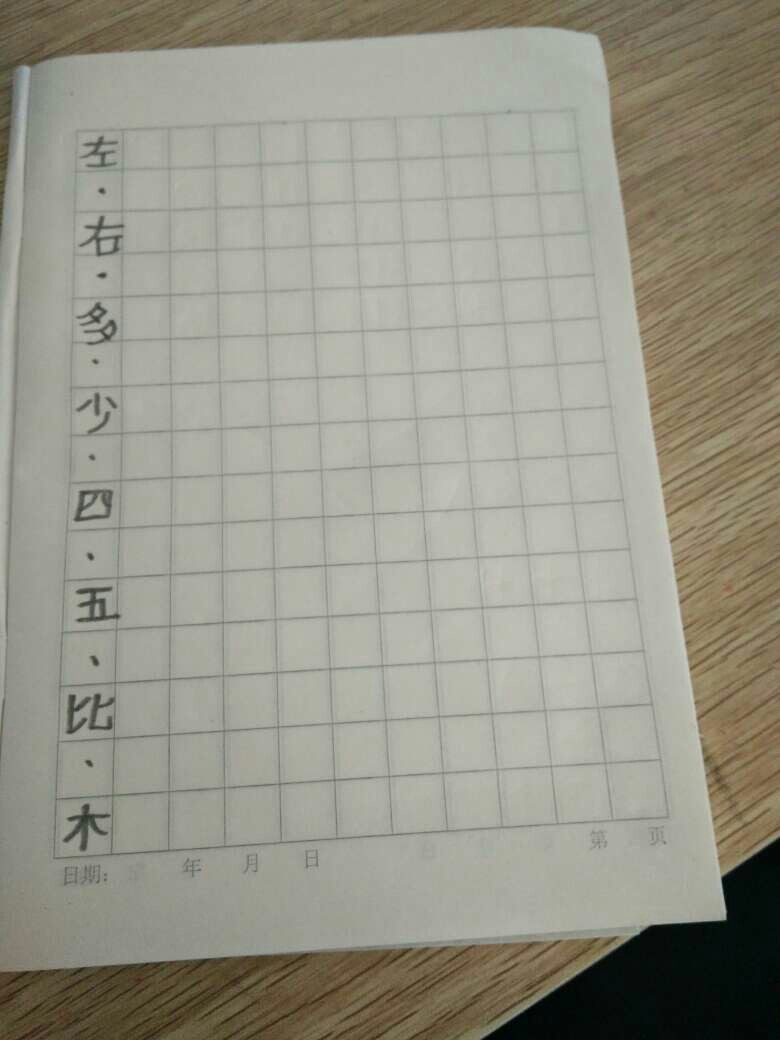 左
·
右
·
多
·
少
·
四
、
五
、
比
、
木
日期： 年 月 日 第 页